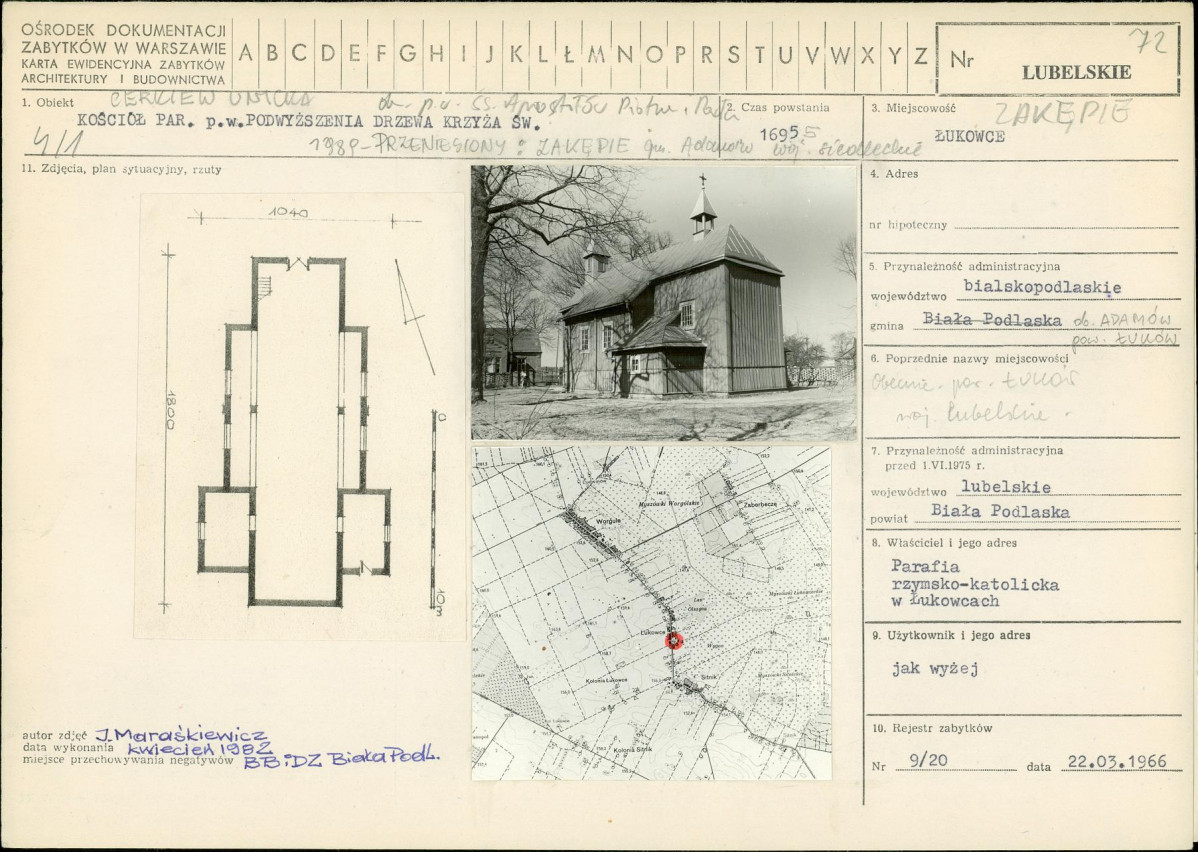 OŚRODEK DOKUMENTACJI
ZABYTKÓW W WARSZAWIE
KARTA EWIDENCYJNA ZABYTKÓW
ARCHITEKTURY I BUDOWNICTWA
A B C D E F G H I J K L Ł M N O P R S T U V W X Y Z
Nr 72
LUBELSKIE
1. Obiekt CERKIEW UNICKA ob. p.w. śś. Apostołów Piotra i Pawła
KOŚCIÓŁ PAR. p.w.PODWYŻSZENIA DRZEWA KRZYŻA ŚW.
4/1 1989-PRZENIESIONY: ZAKĘPIE gm. Adamów woj. siedleckie
2. Czas powstania
1695 5
3. Miejscowość ZAKĘPIE
ŁUKOWCE
11. Zdjęcia, plan sytuacyjny, rzuty
1040
1800
0
10m
Worgule
Zaberbecze
Łukowce
Kolonia Łukowce
Sitnik
Kolonia Sitnik
autor zdjęć J.Maraśkiewicz
data wykonania kwiecień 1982
miejsce przechowywania negatywów BBiDZ Biała Podl.
4. Adres
nr hipoteczny
5. Przynależność administracyjna
województwo bialskopodlaskie
gmina Biała Podlaska ob. ADAMÓW
pow. ŁUKÓW
6. Poprzednie nazwy miejscowości
Obecnie par. ŁUKÓW
woj. lubelskie.
7. Przynależność administracyjna
przed 1.VI.1975 r.
województwo lubelskie
powiat Biała Podlaska
8. Właściciel i jego adres
Parafia
rzymsko-katolicka
w Łukowcach
9. Użytkownik i jego adres
jak wyżej
10. Rejestr zabytków
Nr 9/20 data 22.03.1966